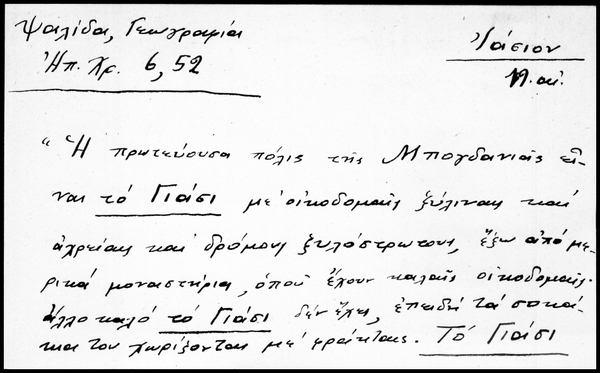 Ψαλίδα, Γεωγραφία
Ἠπ. Χρ. 6, 52
Ἰάσιον
"Ἡ πρωτεύουσα πόλις τῆς Μπογδανιᾶς εἶ-
ναι τό Γιάσι μέ οἰκοδομαῖς ξύλιναις καί
ἀχρείαις καί δρόμους ξυλόστρωτους, ἔξω ἀπό με-
ρικά μοναστήρια, ὁπού ἔχουν καλαῖς οἰκοδομαῖς.
ἄλλο καλό τό Γιάσι δέν ἔχει, ἐπειδή τά σοκά-
κια του χωρίζονται μέ φράκταις. Τό Γιάσι